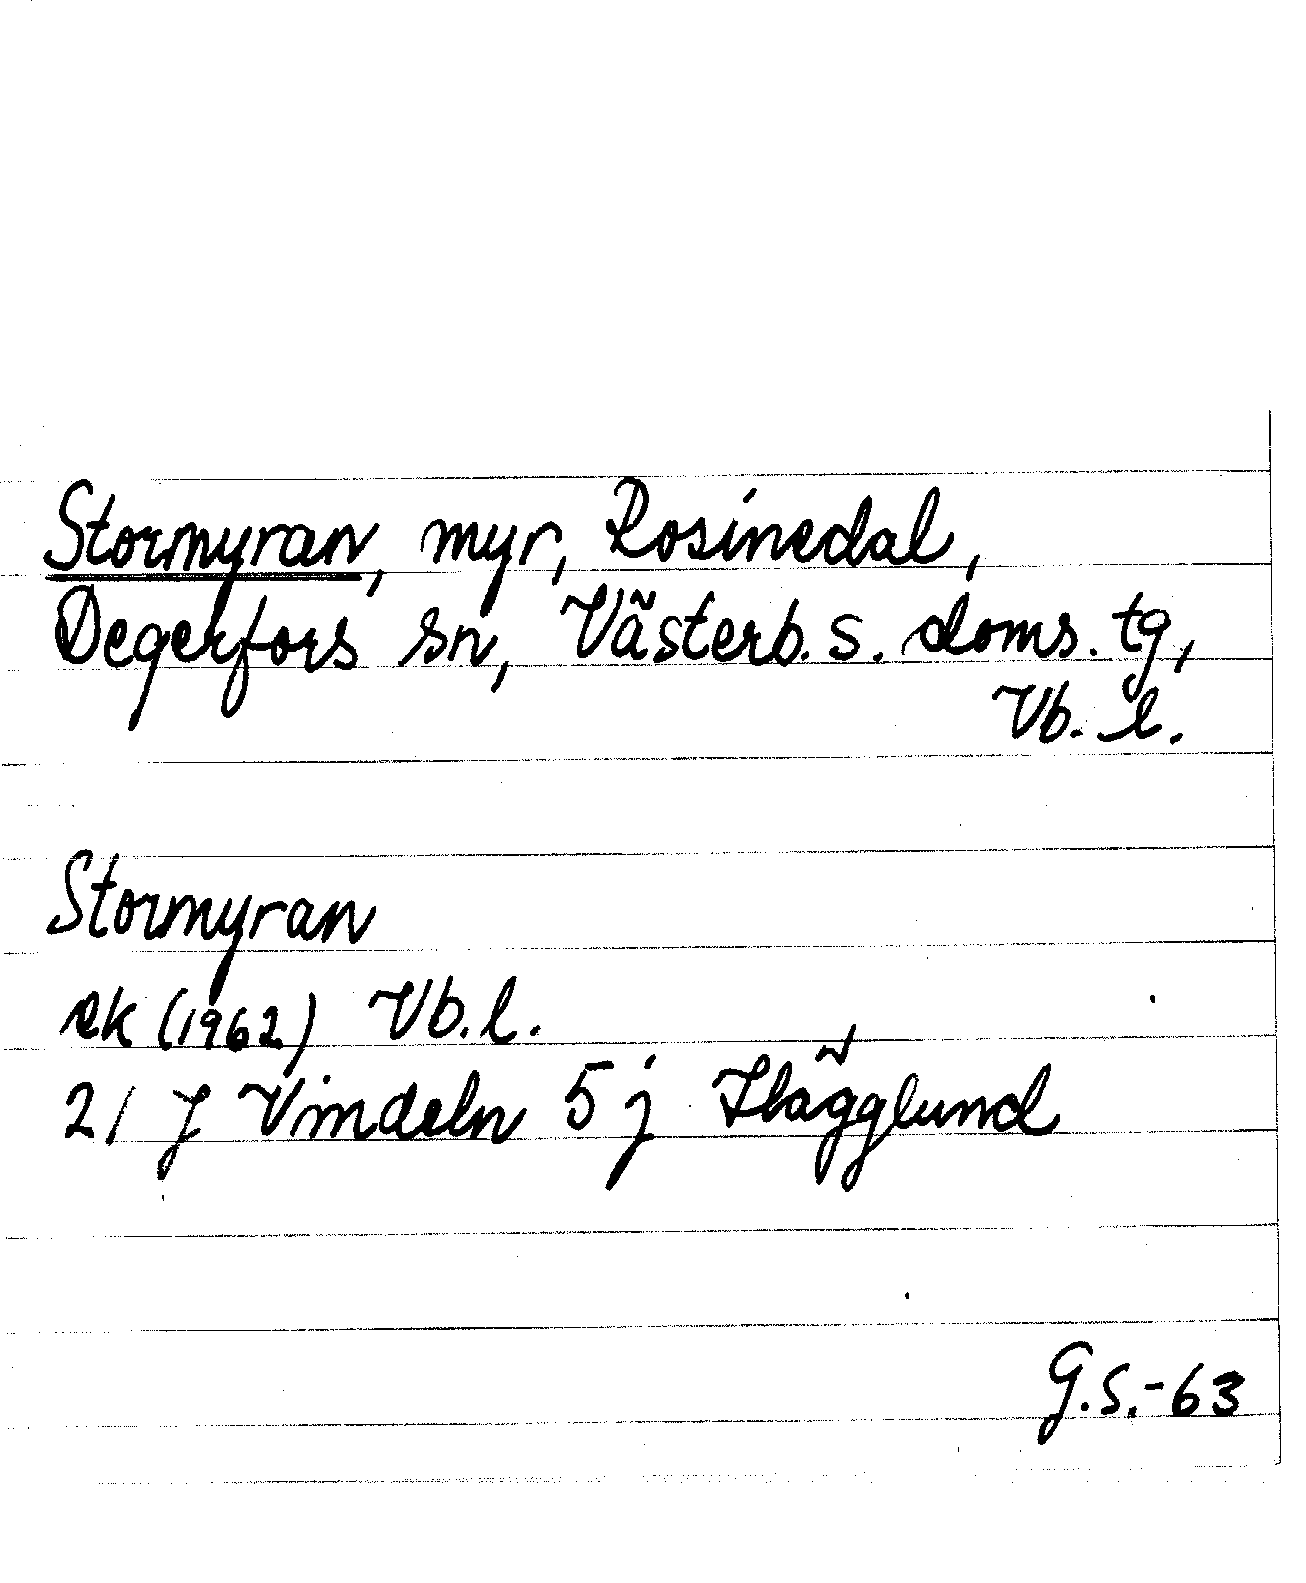 Stormyran, myr, Rosinedal,
Degerfors sn, Västerb. s. doms. tg,
Vb. l.
Stormyran
ek (1962) Vb. l.
21 J Vindeln 5 j Hägglund
G.S.-63